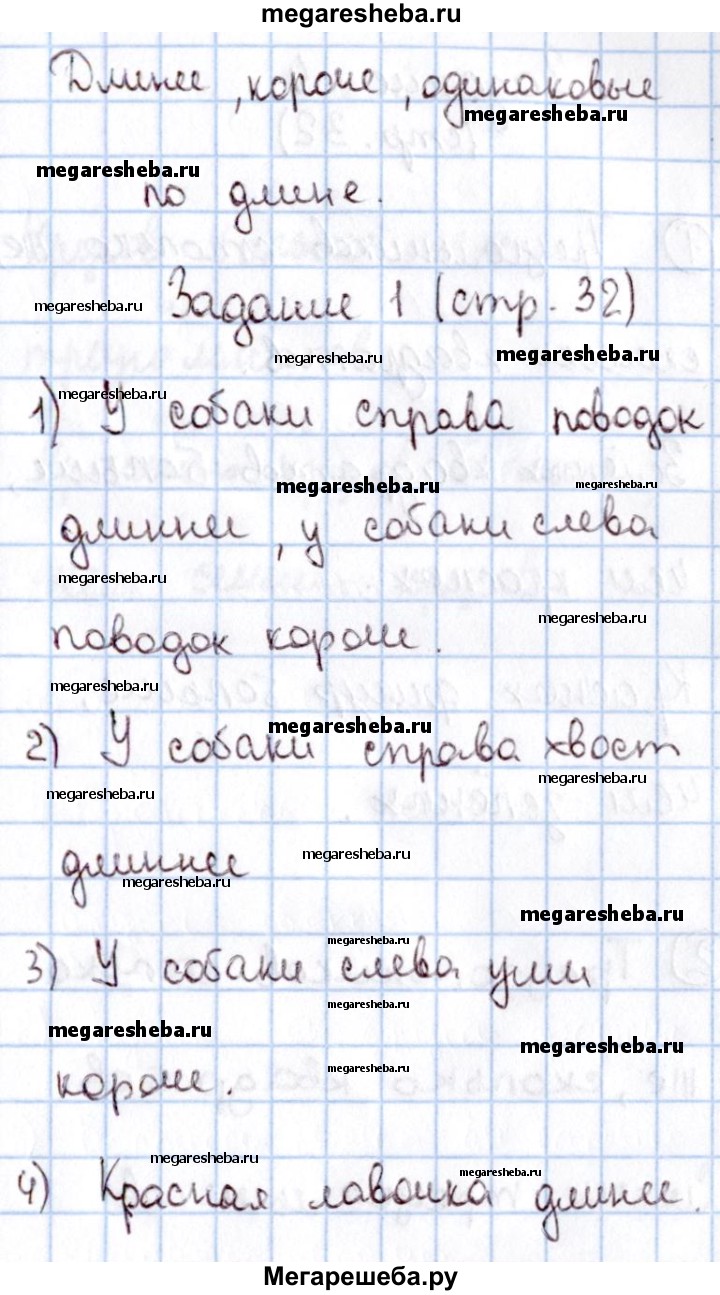 megaresheba.ru
Длинее, короче, одинаковые
megaresheba.ru
megaresheba.ru
по длине.
megaresheba.ru
Задание 1 (стр. 32)
megaresheba.ru
megaresheba.ru
megaresheba.ru
1) У собаки справа поводок
megaresheba.ru
megaresheba.ru
длиннее, у собаки слева
megaresheba.ru
megaresheba.ru
поводок короче.
megaresheba.ru
megaresheba.ru
2) У собаки справа хвост
megaresheba.ru
megaresheba.ru
длиннее
megaresheba.ru
megaresheba.ru
megaresheba.ru
megaresheba.ru
3) У собаки слева уши
megaresheba.ru
megaresheba.ru
megaresheba.ru
megaresheba.ru
короче.
megaresheba.ru
megaresheba.ru
4) Красная лавочка длинее.
Мегарешеба.ру